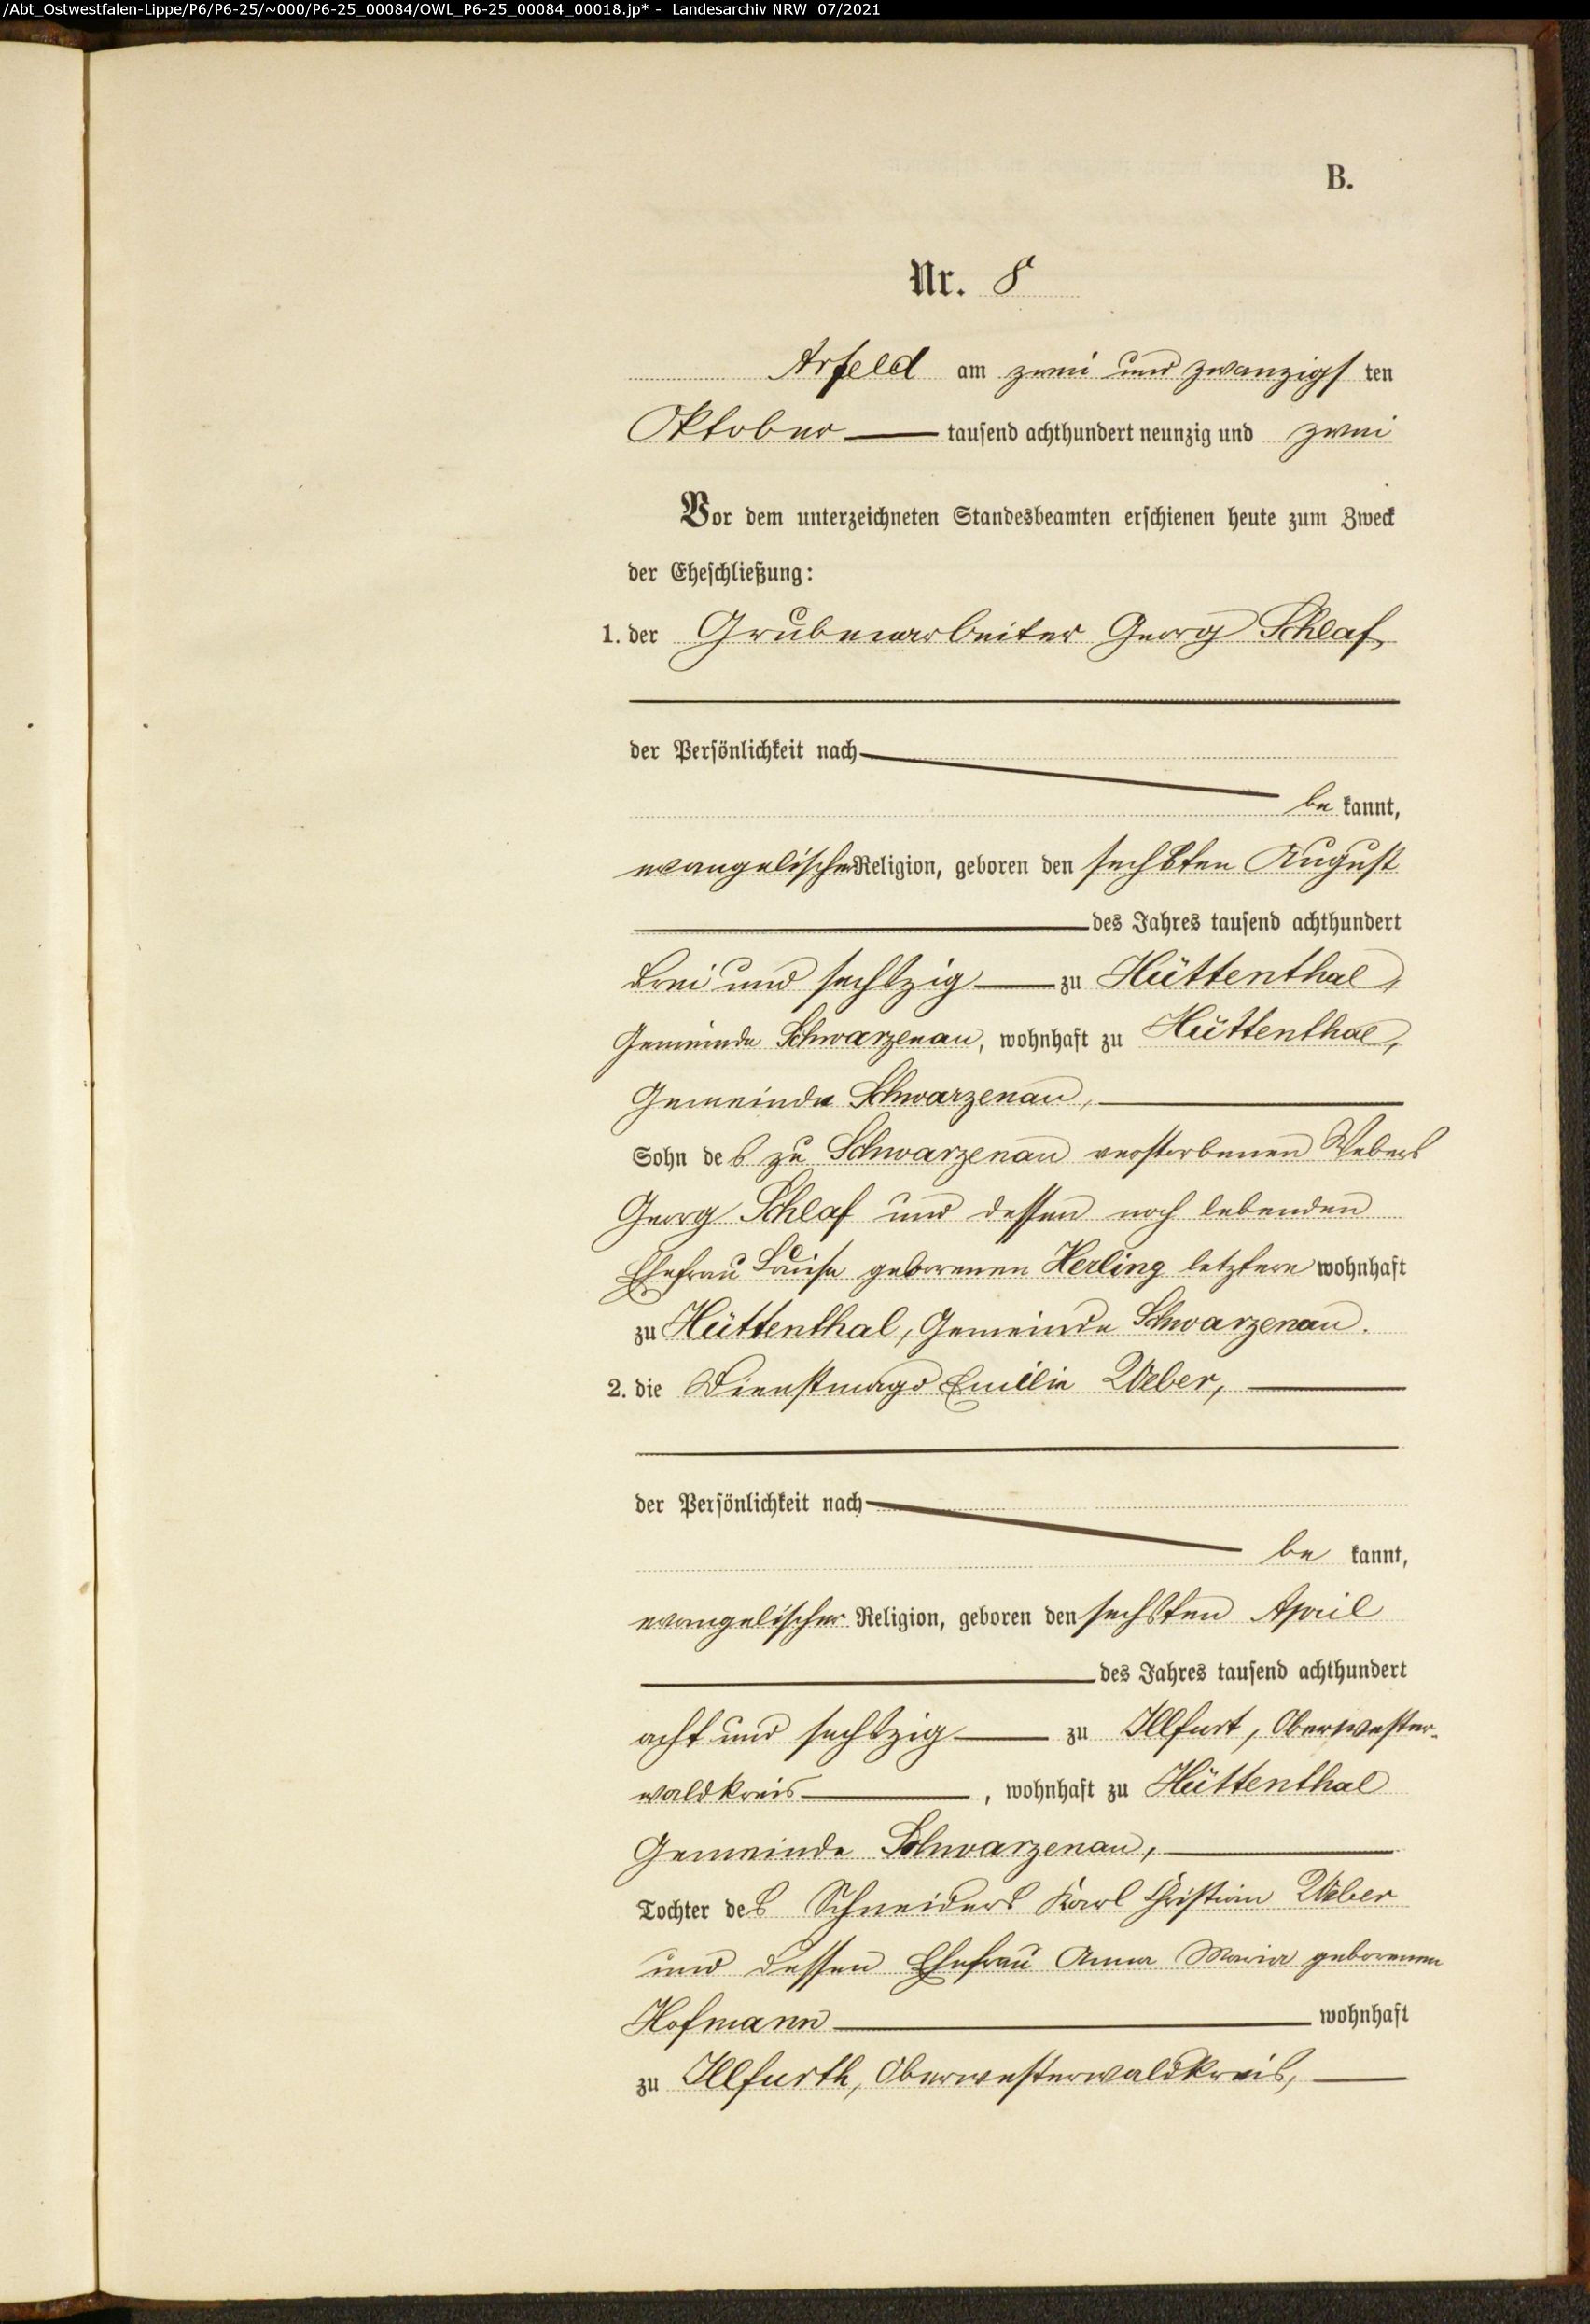 /Abt_Ostwestfalen-Lippe/P6/P6-25/~000/P6-25_00084/OWL_P6-25_00084_00018.jp* - Landesarchiv NRW 07/2021
B.
Nr. 8
Arfeld am zwei und zwanzigsten
Oktober tausend achthundert neunzig und zwei
Vor dem unterzeichneten Standesbeamten erschienen heute zum Zweck
der Eheschließung:
1. der Grubenarbeiter Georg Schlaf
der Persönlichkeit nach
be kannt,
evangelischer Religion, geboren den sechsten August
des Jahres tausend achthundert
drei und sechszig zu Hüttenthal,
Gemeinde Schwarzenau, wohnhaft zu Hüttenthal,
Gemeinde Schwarzenau,
Sohn des zu Schwarzenau verstorbenen Webers
Georg Schlaf und dessen noch lebenden
Ehefrau Louise geborenen Herling letztere wohnhaft
zu Hüttenthal, Gemeinde Schwarzenau.
2. die Dienstmagd Emilie Weber,
der Persönlichkeit nach
be kannt,
evangelischer Religion, geboren den sechsten April
des Jahres tausend achthundert
acht und sechszig zu Illfurt, Oberwester-
waldkreis, wohnhaft zu Hüttenthal
Gemeinde Schwarzenau,
Tochter des Schneiders Karl Christian Weber
und dessen Ehefrau Anna Maria geborenen
Hofmann wohnhaft
zu Illfurth, Oberwesterwaldkreis,